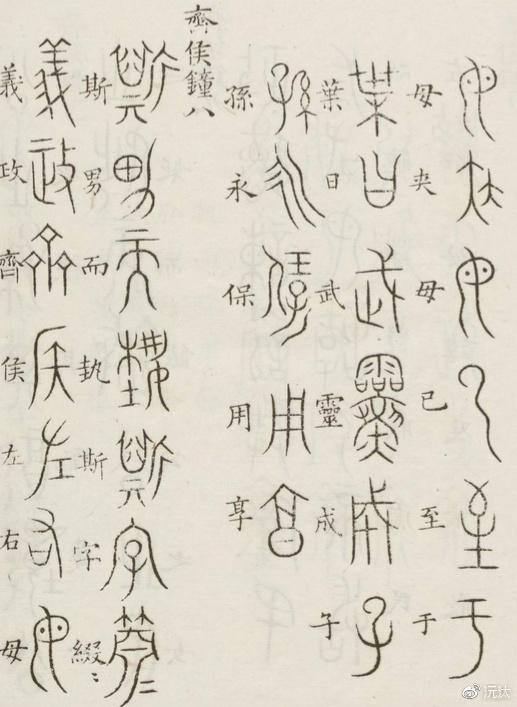 母母已至于
葉曰武靈成子
孫永保用享
齊侯鐘八
斯男而執斯字綴〻
義政齊侯左右〻母